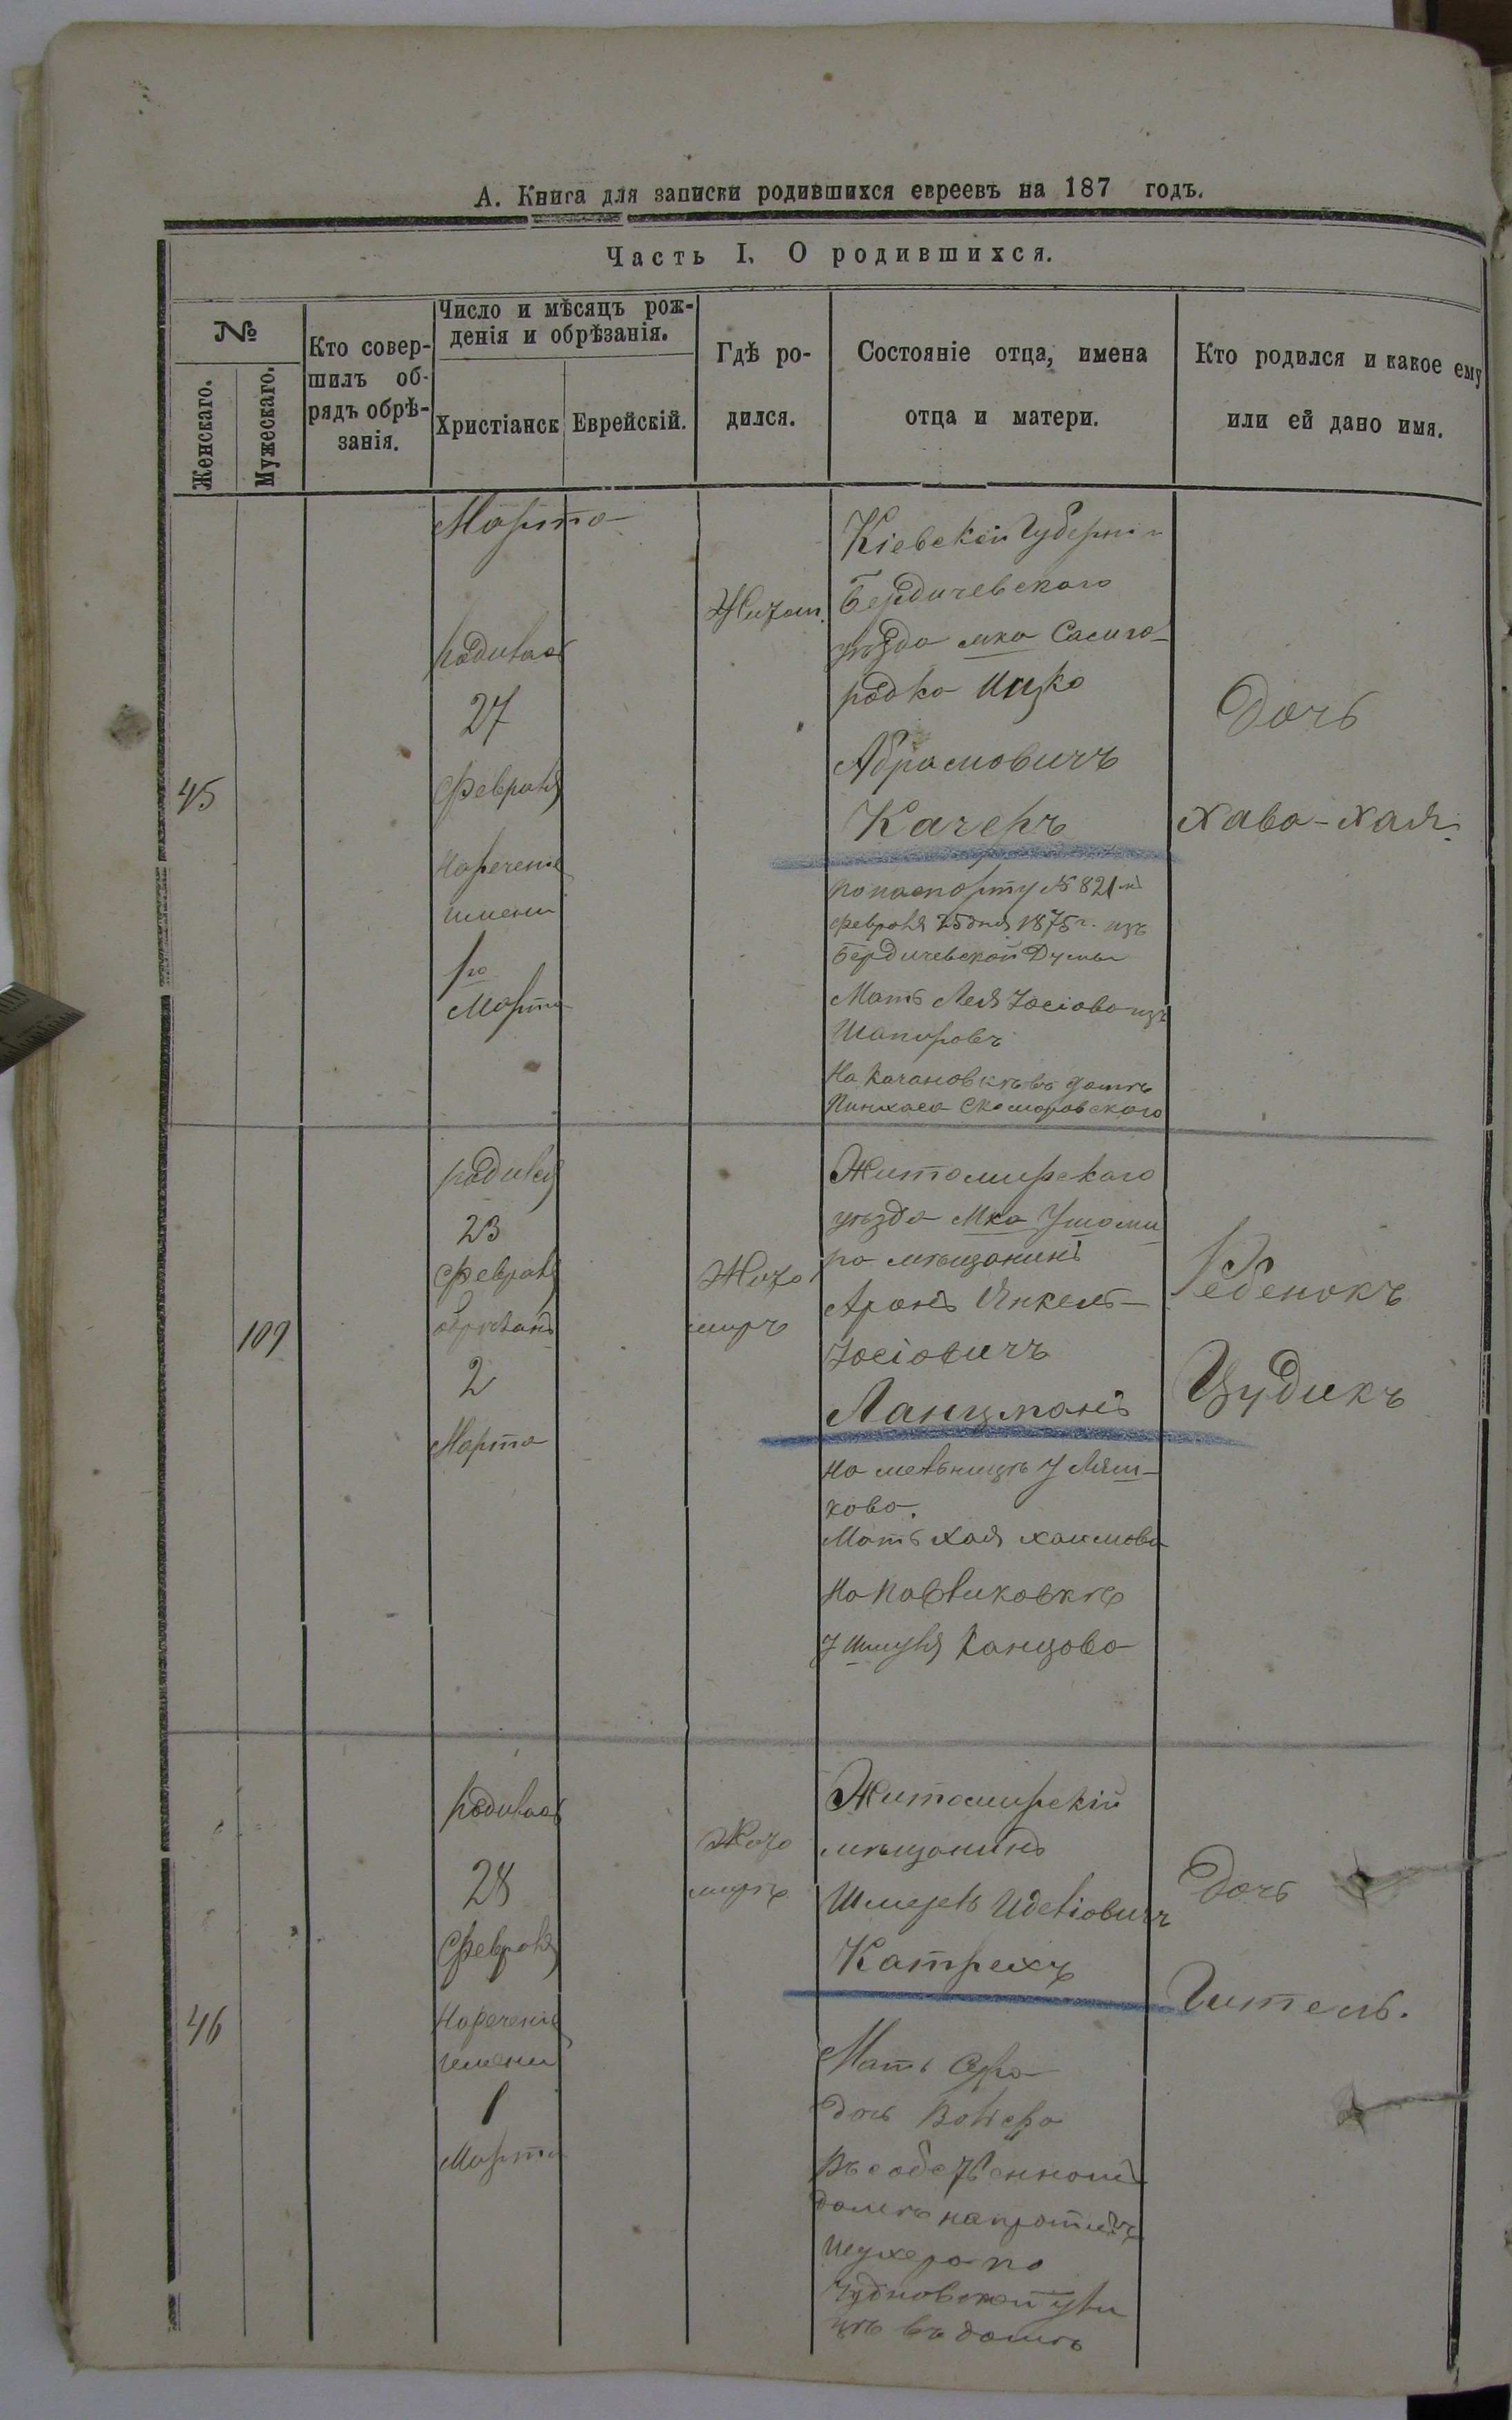 А. Книга для записки родившихся евреевъ на 187 годъ.
Часть I. О родившихся.
№
Женскаго.
Мужескаго.
Кто совер-
шилъ об-
рядъ обрѣ-
занія.
Число и мѣсяцъ рож-
денія и обрѣзанія.
Христіанск
Еврейскій.
Гдѣ ро-
дился.
Состояніе отца, имена
отца и матери.
Кто родился и какое ему
или ей дано имя.
Марта
45
родилась
27
Февраля
Наречение
имени
1го
Марта
Житом.
Кіевской Губерніи
Бердичевского
уѣзда мка Самго-
родка Ицко
Абрамовичъ
Качеръ
по паспорту №821мъ
Февраля 25 дня 1875 г. изъ
Бердичевской Думы
Мать Лея Іосіова изъ
Шапировъ
На Качановкѣ въ домѣ
Пинхаса Скоморовского
Дочь
Хава-Хая.
109
родился
23
Февраля
обрѣзанъ
2
Марта
Жито
миръ
Житомирскаго
уѣзда Мка Ушоми
ра мѣщанинъ
Аронъ Янкель-
Іосіовичъ
Ланцманъ
На мельницѣ у Ляш-
кова.
Мать Хая Хаимова
На Павликовкѣ
у Шмуля Канцова
Ребенокъ
Цудикъ
46
родилась
28
Февраля
Наречение
имени
1
Марта
Жито
мирѣ
Житомирскій
мѣщанинъ
Шмерель Иделіовичъ
Катрехъ
Мать Сура
дочь Вольфа
Въ собственномъ
домѣ напротивъ
по
Чудновской ули
цѣ въ домѣ
Дочь
Гитель.